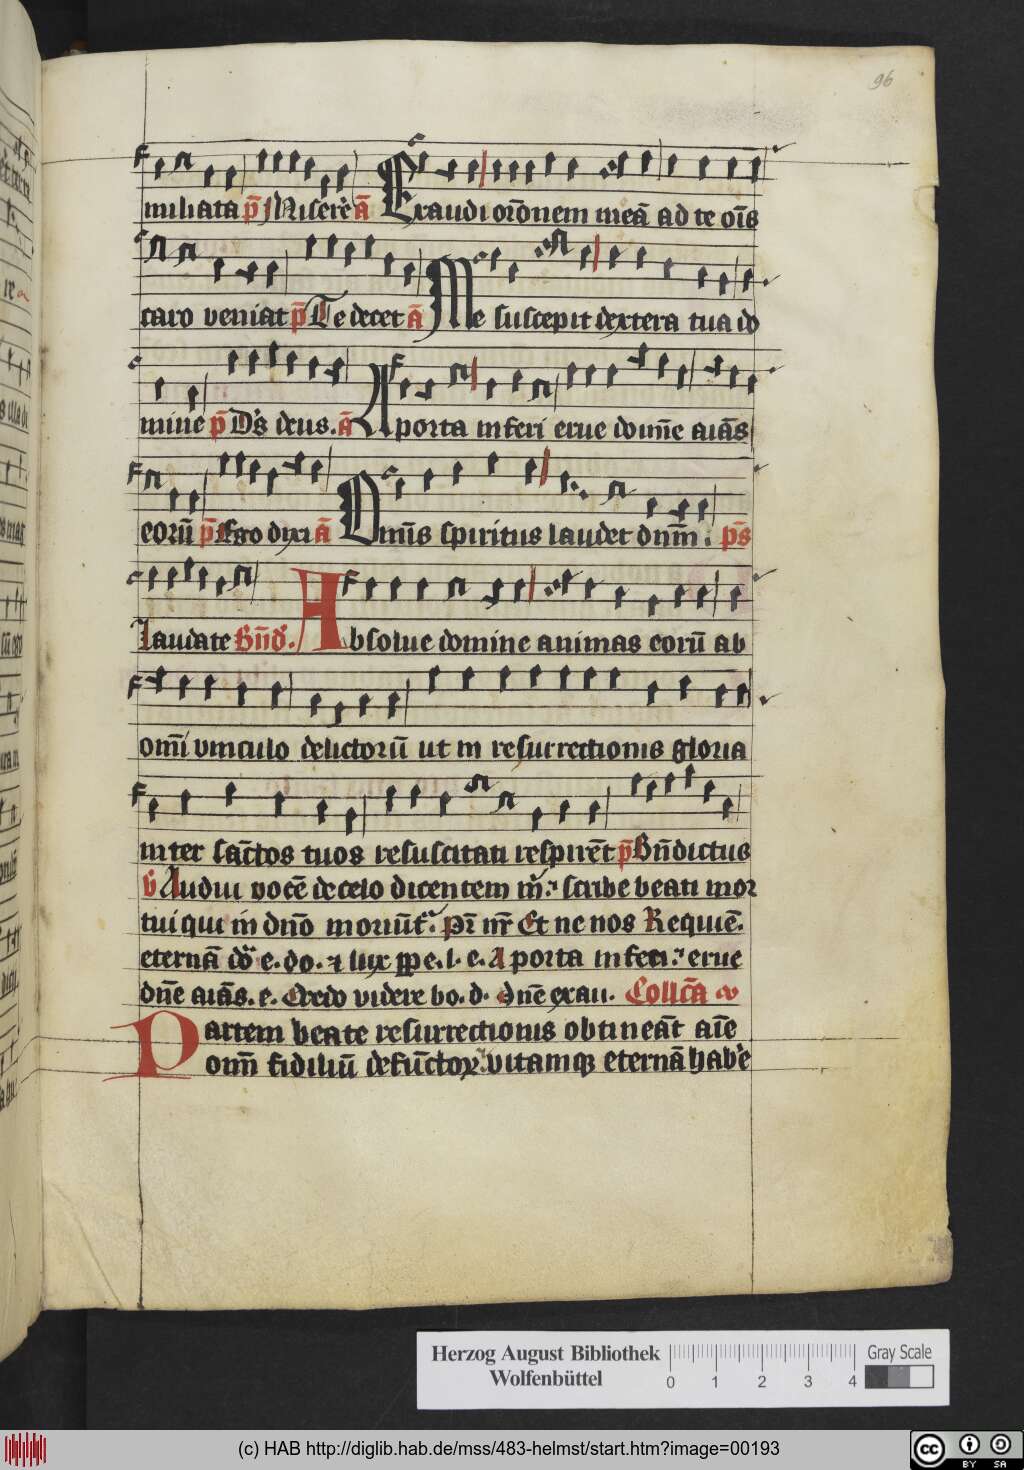 96
miliata p̄ Miserēr ā Exaudi orōnem meā ad te oīs
caro veniat p̄ Te decet ā Me suscepit dextera tua do
mine p̄ Ds deus. ā A porta inferi erue domīe aīās
eorū p̄ Ego dixi ā Omīs spiritus laudet dnm̄. ps̄
Laudate Bn̄d. Absolue domine animas eorū ab
omī vinculo delictorū ut in resurrectionis gloria
inter sāctos tuos resuscitati respirēt p̄ Bn̄dictus
Audiui vocē de celo dicentem m̄ scribe beati mor
tui qui in dn̄o moriūt. Pr̄ nr̄ Et ne nos Requiē.
eternā dō e. do. ⁊ lux ppe. l. e. A porta inferi. erue
dn̄e aīās. e. Credo videre bo. d. dn̄e exau. Collc̄a
Partem beate resurrectionis obtineāt aīe
om̄ fidiliū defūctoꝝ vitamqꝫ eternā hab'e
Herzog August Bibliothek
Wolfenbüttel
0 1 2 3 4
Gray Scale
(c) HAB http://diglib.hab.de/mss/483-helmst/start.htm?image=00193
cc BY SA